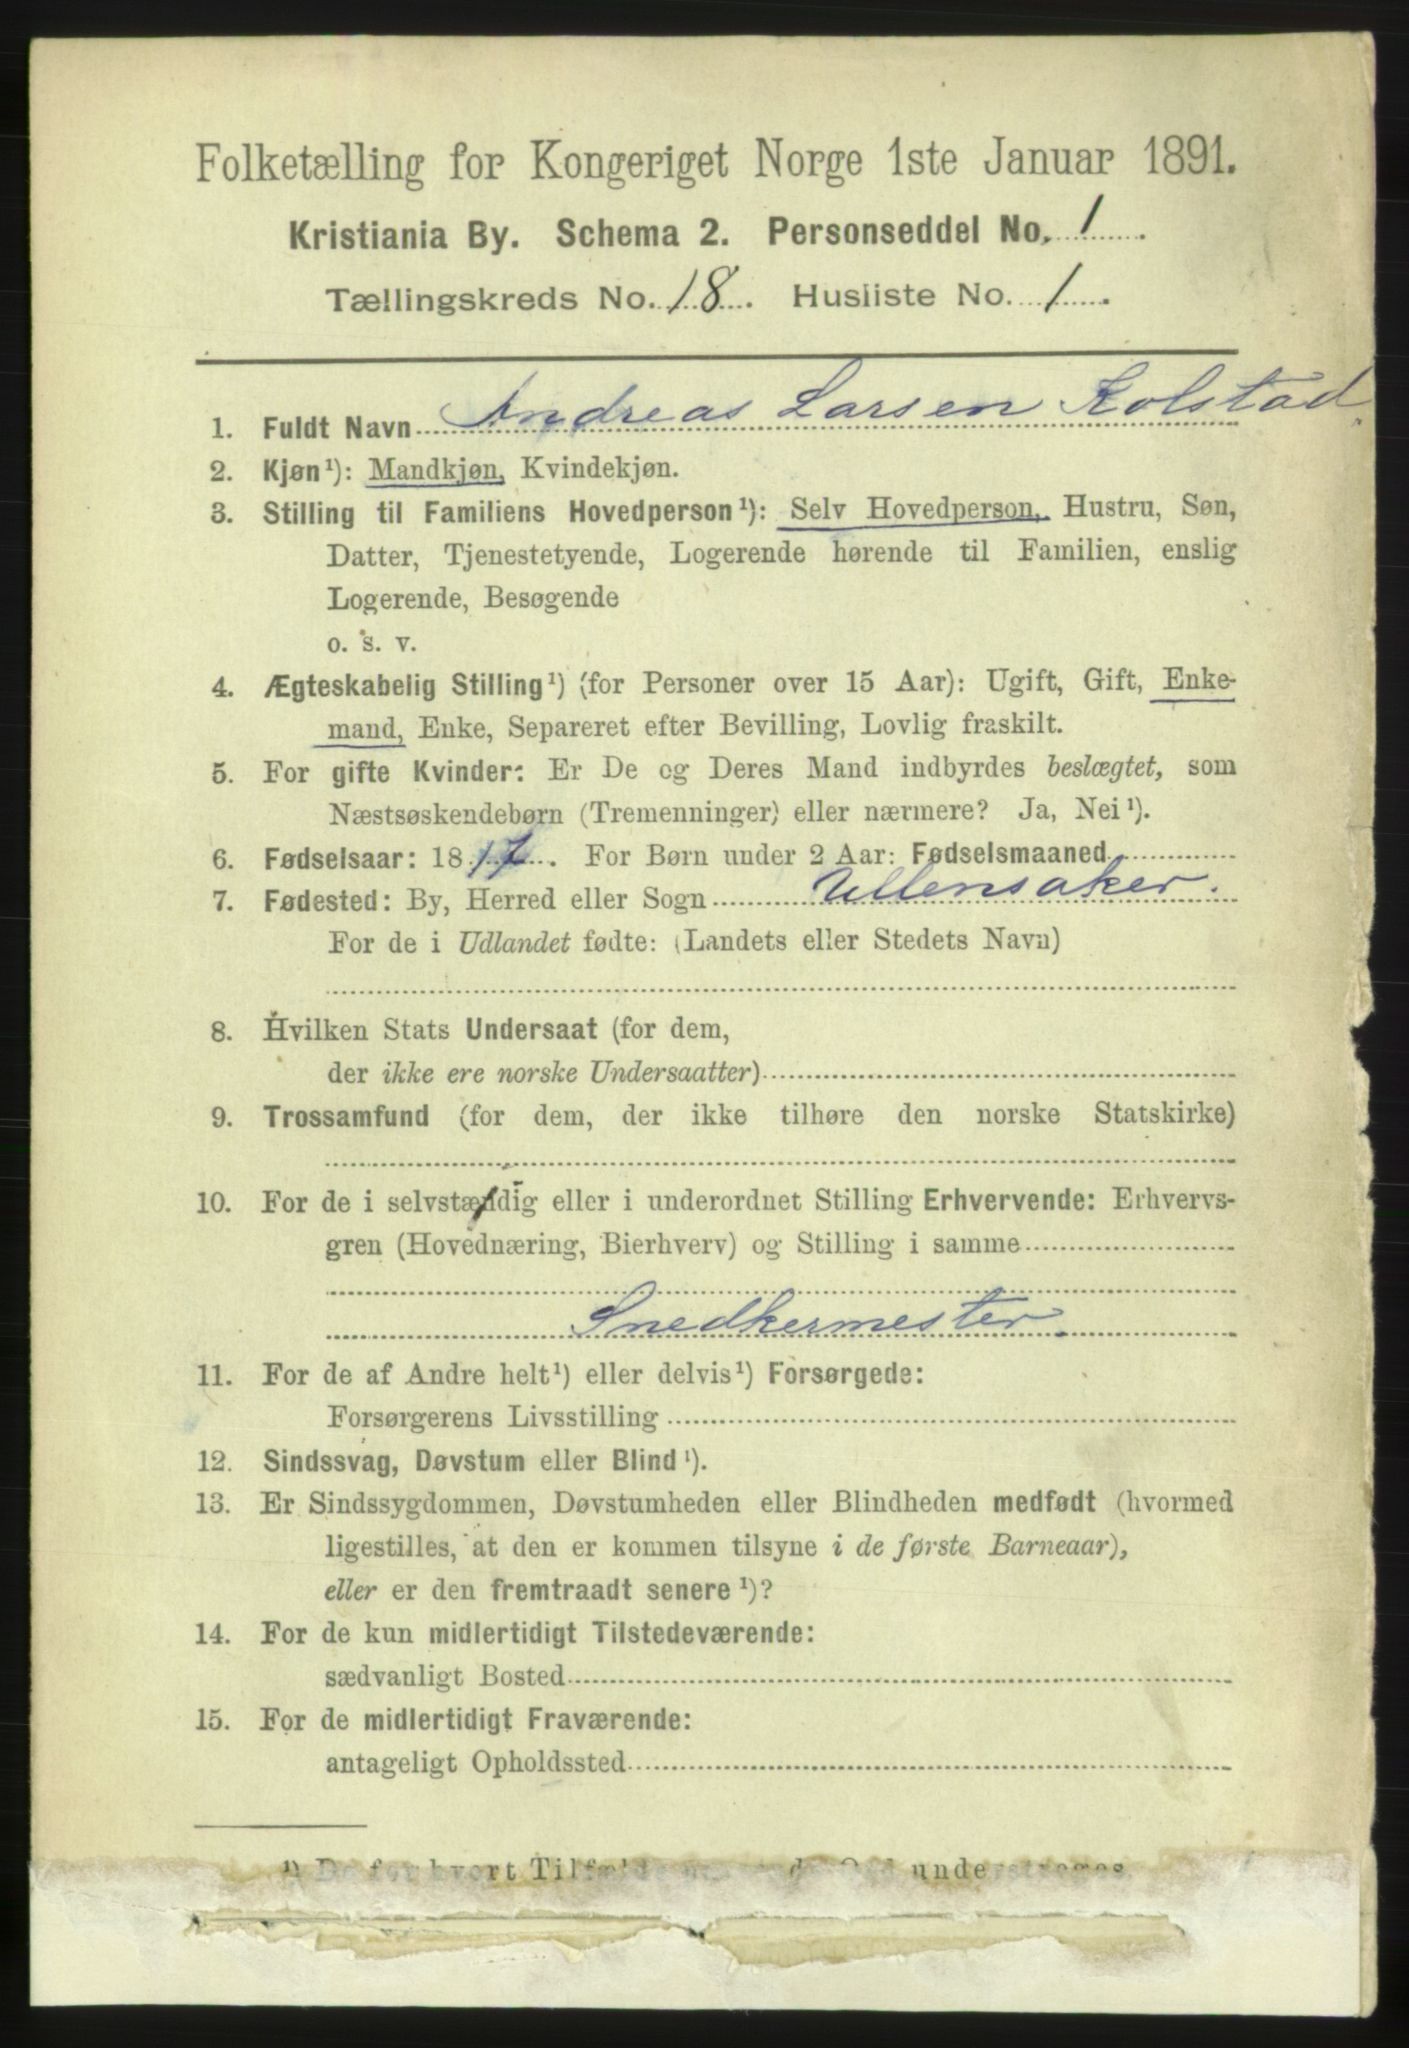 Folketælling for Kongeriget Norge 1ste Januar 1891.
Kristiania By. Schema 2. Personseddel No. 1
Tællingskreds No. 18. Husliste No. 1.
1. Fuldt Navn Andreas Larsen Kolstad.
2. Kjøn¹): Mandkjøn, Kvindekjøn.
3. Stilling til Familiens Hovedperson¹): Selv Hovedperson, Hustru, Søn,
Datter, Tjenestetyende, Logerende hørende til Familien, enslig
Logerende, Besøgende
o. s. v.
4. Ægteskabelig Stilling¹) (for Personer over 15 Aar): Ugift, Gift, Enke-
mand, Enke, Separeret efter Bevilling, Lovlig fraskilt.
5. For gifte Kvinder: Er De og Deres Mand indbyrdes beslægtet, som
Næstsøskendebørn (Tremenninger) eller nærmere? Ja, Nei¹).
6. Fødselsaar: 1817. For Børn under 2 Aar: Fødselsmaaned
7. Fødested: By, Herred eller Sogn Ullensaker.
For de i Udlandet fødte: (Landets eller Stedets Navn)
8. Hvilken Stats Undersaat (for dem,
der ikke ere norske Undersaatter)
9. Trossamfund (for dem, der ikke tilhøre den norske Statskirke)
10. For de i selvstændig eller i underordnet Stilling Erhvervende: Erhvervs-
gren (Hovednæring, Bierhverv) og Stilling i samme
Snedkermester.
11. For de af Andre helt¹) eller delvis¹) Forsørgede:
Forsørgerens Livsstilling
12. Sindssvag, Døvstum eller Blind¹).
13. Er Sindssygdommen, Døvstumheden eller Blindheden medfødt (hvormed
ligestilles, at den er kommen tilsyne i de første Barneaar),
eller er den fremtraadt senere¹)?
14. For de kun midlertidigt Tilstedeværende:
sædvanligt Bosted
15. For de midlertidigt Fraværende:
antageligt Opholdssted
¹) De for hvert Tilfælde Ord understreges.